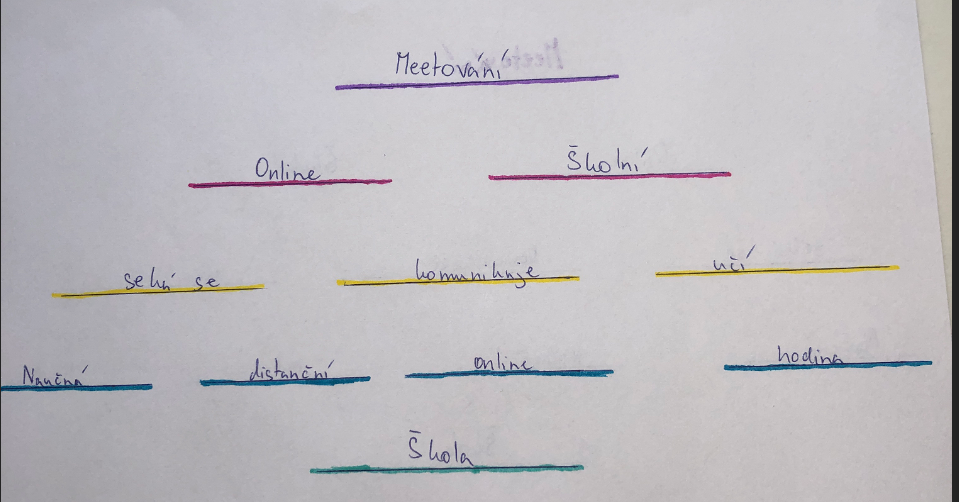 Meetování
Online Školní
seká se komunikuje učí
Naučná distanční online hodina
Škola